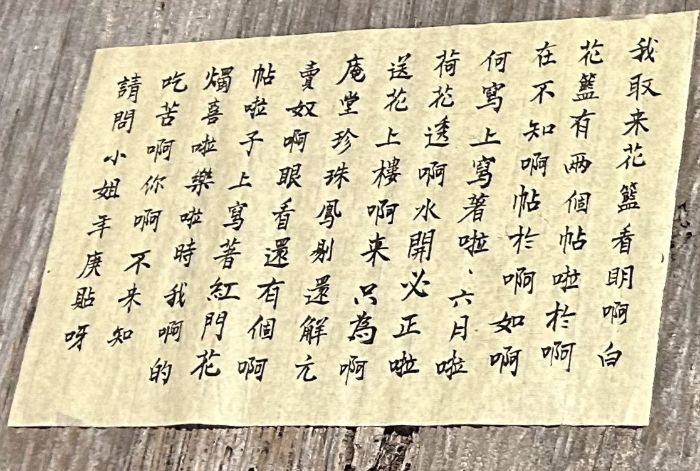 我取来花籃看明啊白
花籃有两個帖啦於啊
在不知啊帖於啊如啊
何寫上寫著啦、六月啦
荷花透啊水開必正啦
送花上樓啊来只為啊
庵堂珍珠鳳剔還解元
賣奴啊眼看還有個啊
帖啦子上寫著紅門花
燭喜啦樂啦時我啊的
吃苦啊你啊不来知
請問小姐年庚貼呀